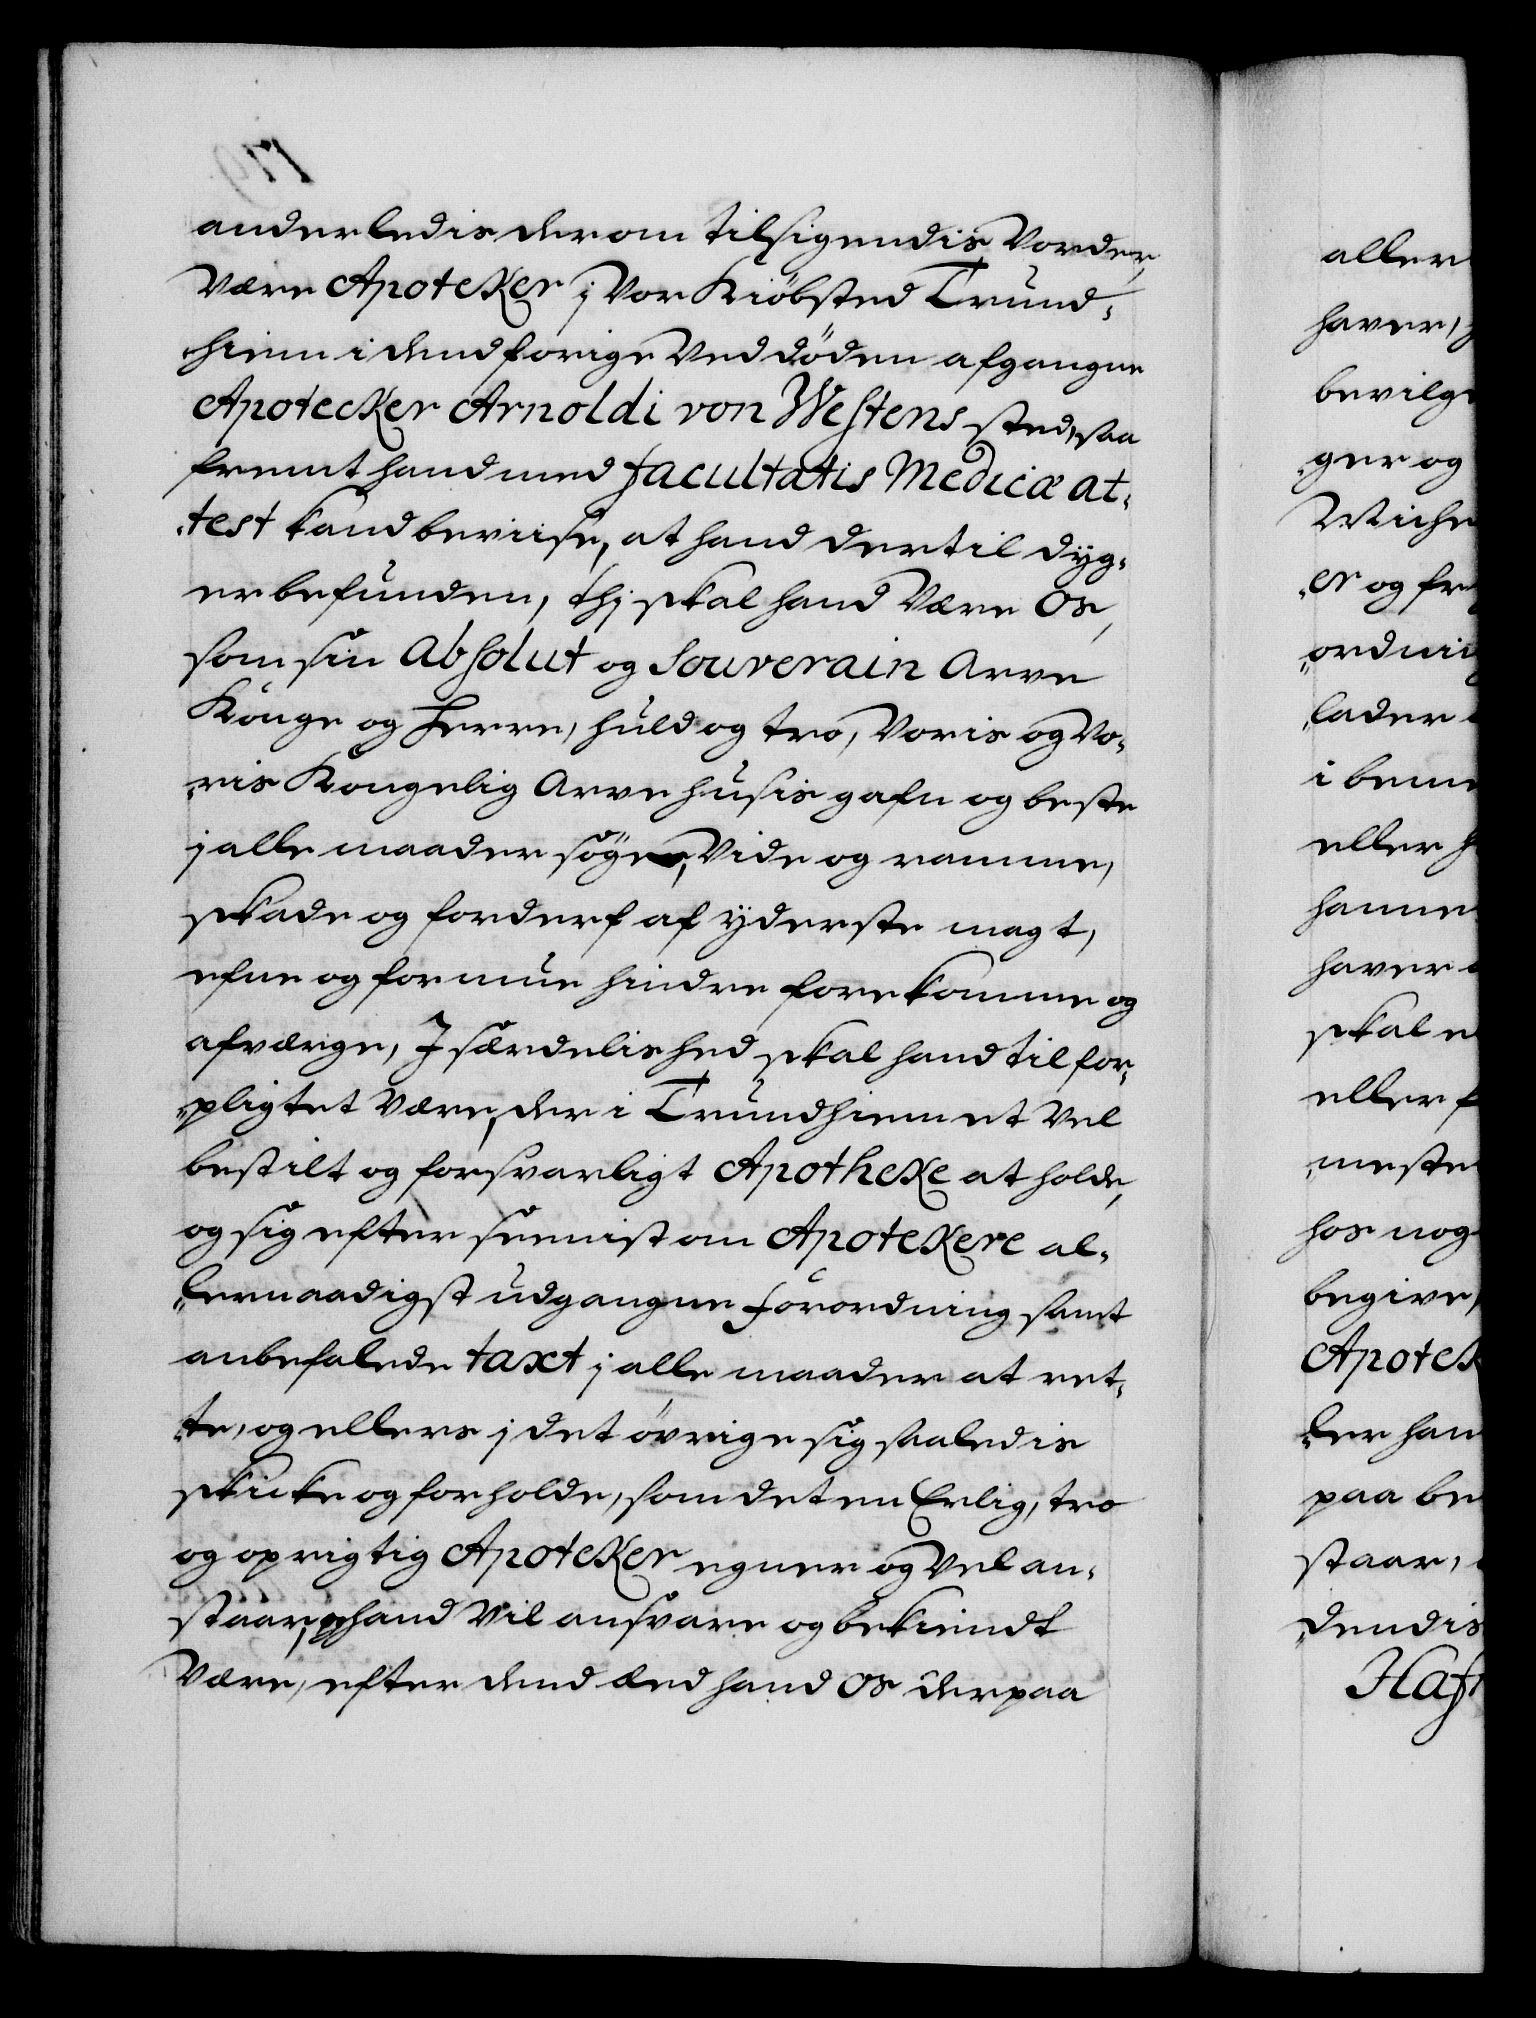 anderledis derom tilsigendis Vorder,
Være Apoteker j Vor Kiöbsted Trund-
hiem i dend forige Ved döden afgangne
Apotecker Arnoldi von Westens sted, saa
fremt hand med facultatis Medicæ at-
test kand beviise, at hand dertil dyg-
er befunden, thj skal hand Være Os,
som sin Absolut og Souverain Arve
Konge og Herre, huld og tro, Voris og Vo-
ris Kongelig Arve husis gafn og beste
j alle maader söge, Vide og ramme,
skade og forderf af yderste magt,
efne og formue hindre forekomme og
afværge, J særdelished skal hand til for-
pligtet Være, der i Trundhiem et Vel
bestilt og forsvarligt Apotheke at holde,
og sig efter seenist om Apotekere al-
lernaadigst udgangne forordning samt
anbefalede taxt j alle maader at ret-
te, og ellers j det övrige sig saaledis
skicke og forholde, som det en Erlig, tro
og oprigtig Apoteker egner og Vel an-
staar, hand Vil ansvare og bekiendt
Være, efter dend æed hand Os derpaa
aller
haver,
bevilg
ger og
Miche
er og fr
ordni
lader
i bem
eller h
hanne
haver
skal e
eller f
meste
hos nog
begive,
Apotek
ler han
paa be
staar,
dendis
Haf